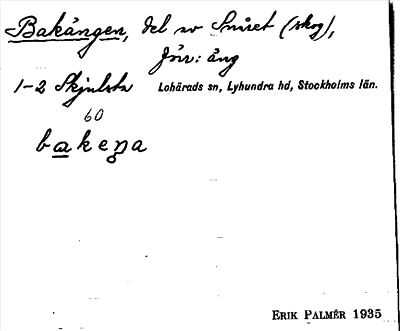 Bakängen, del av Snåret (skog),
förr: äng
1-2 Skjulsta Lohärads sn, Lyhundra hd, Stockholms län.
60
bakeŋa
ERIK PALMÉR 1935